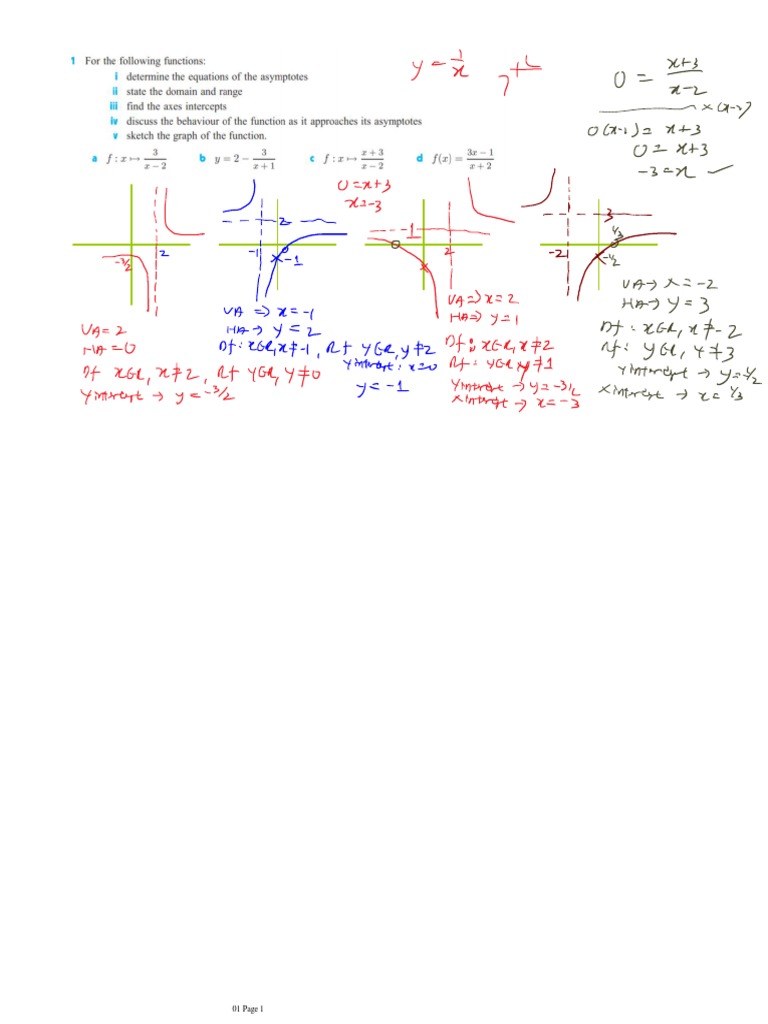 1 For the following functions:
i determine the equations of the asymptotes
ii state the domain and range
iii find the axes intercepts
iv discuss the behaviour of the function as it approaches its asymptotes
v sketch the graph of the function.
a f : x ↦ 3/(x − 2) b y = 2 − 3/(x + 1) c f : x ↦ (x + 3)/(x − 2) d f(x) = (3x − 1)/(x + 2)
y = 1/x
0 = (x+3)/(x-2)
×(x-2)
0(x-2) = x+3
0 = x+3
-3 = x ✓
0 = x+3
x = -3
2
-3/2
VA = 2
HA = 0
Df x∈R, x≠2, Rf y∈R, y≠0
Y intercept → y = -3/2
2
-1
-1
VA => x = -1
HA → y = 2
Df: x∈R, x≠-1, Rf y∈R, y≠2
Y intercept: x=0
y = -1
-1
2
VA => x = 2
HA => y = 1
Df: x∈R, x≠2
Rf: y∈R y≠1
Y intercept → y = -3/2
X intercept → x = -3
3
1/3
-2
-1/2
VA → x = -2
HA → y = 3
Df: x∈R, x≠-2
Rf: y∈R, y≠3
Y intercept → y = 1/2
X intercept → x = 1/3
01 Page 1